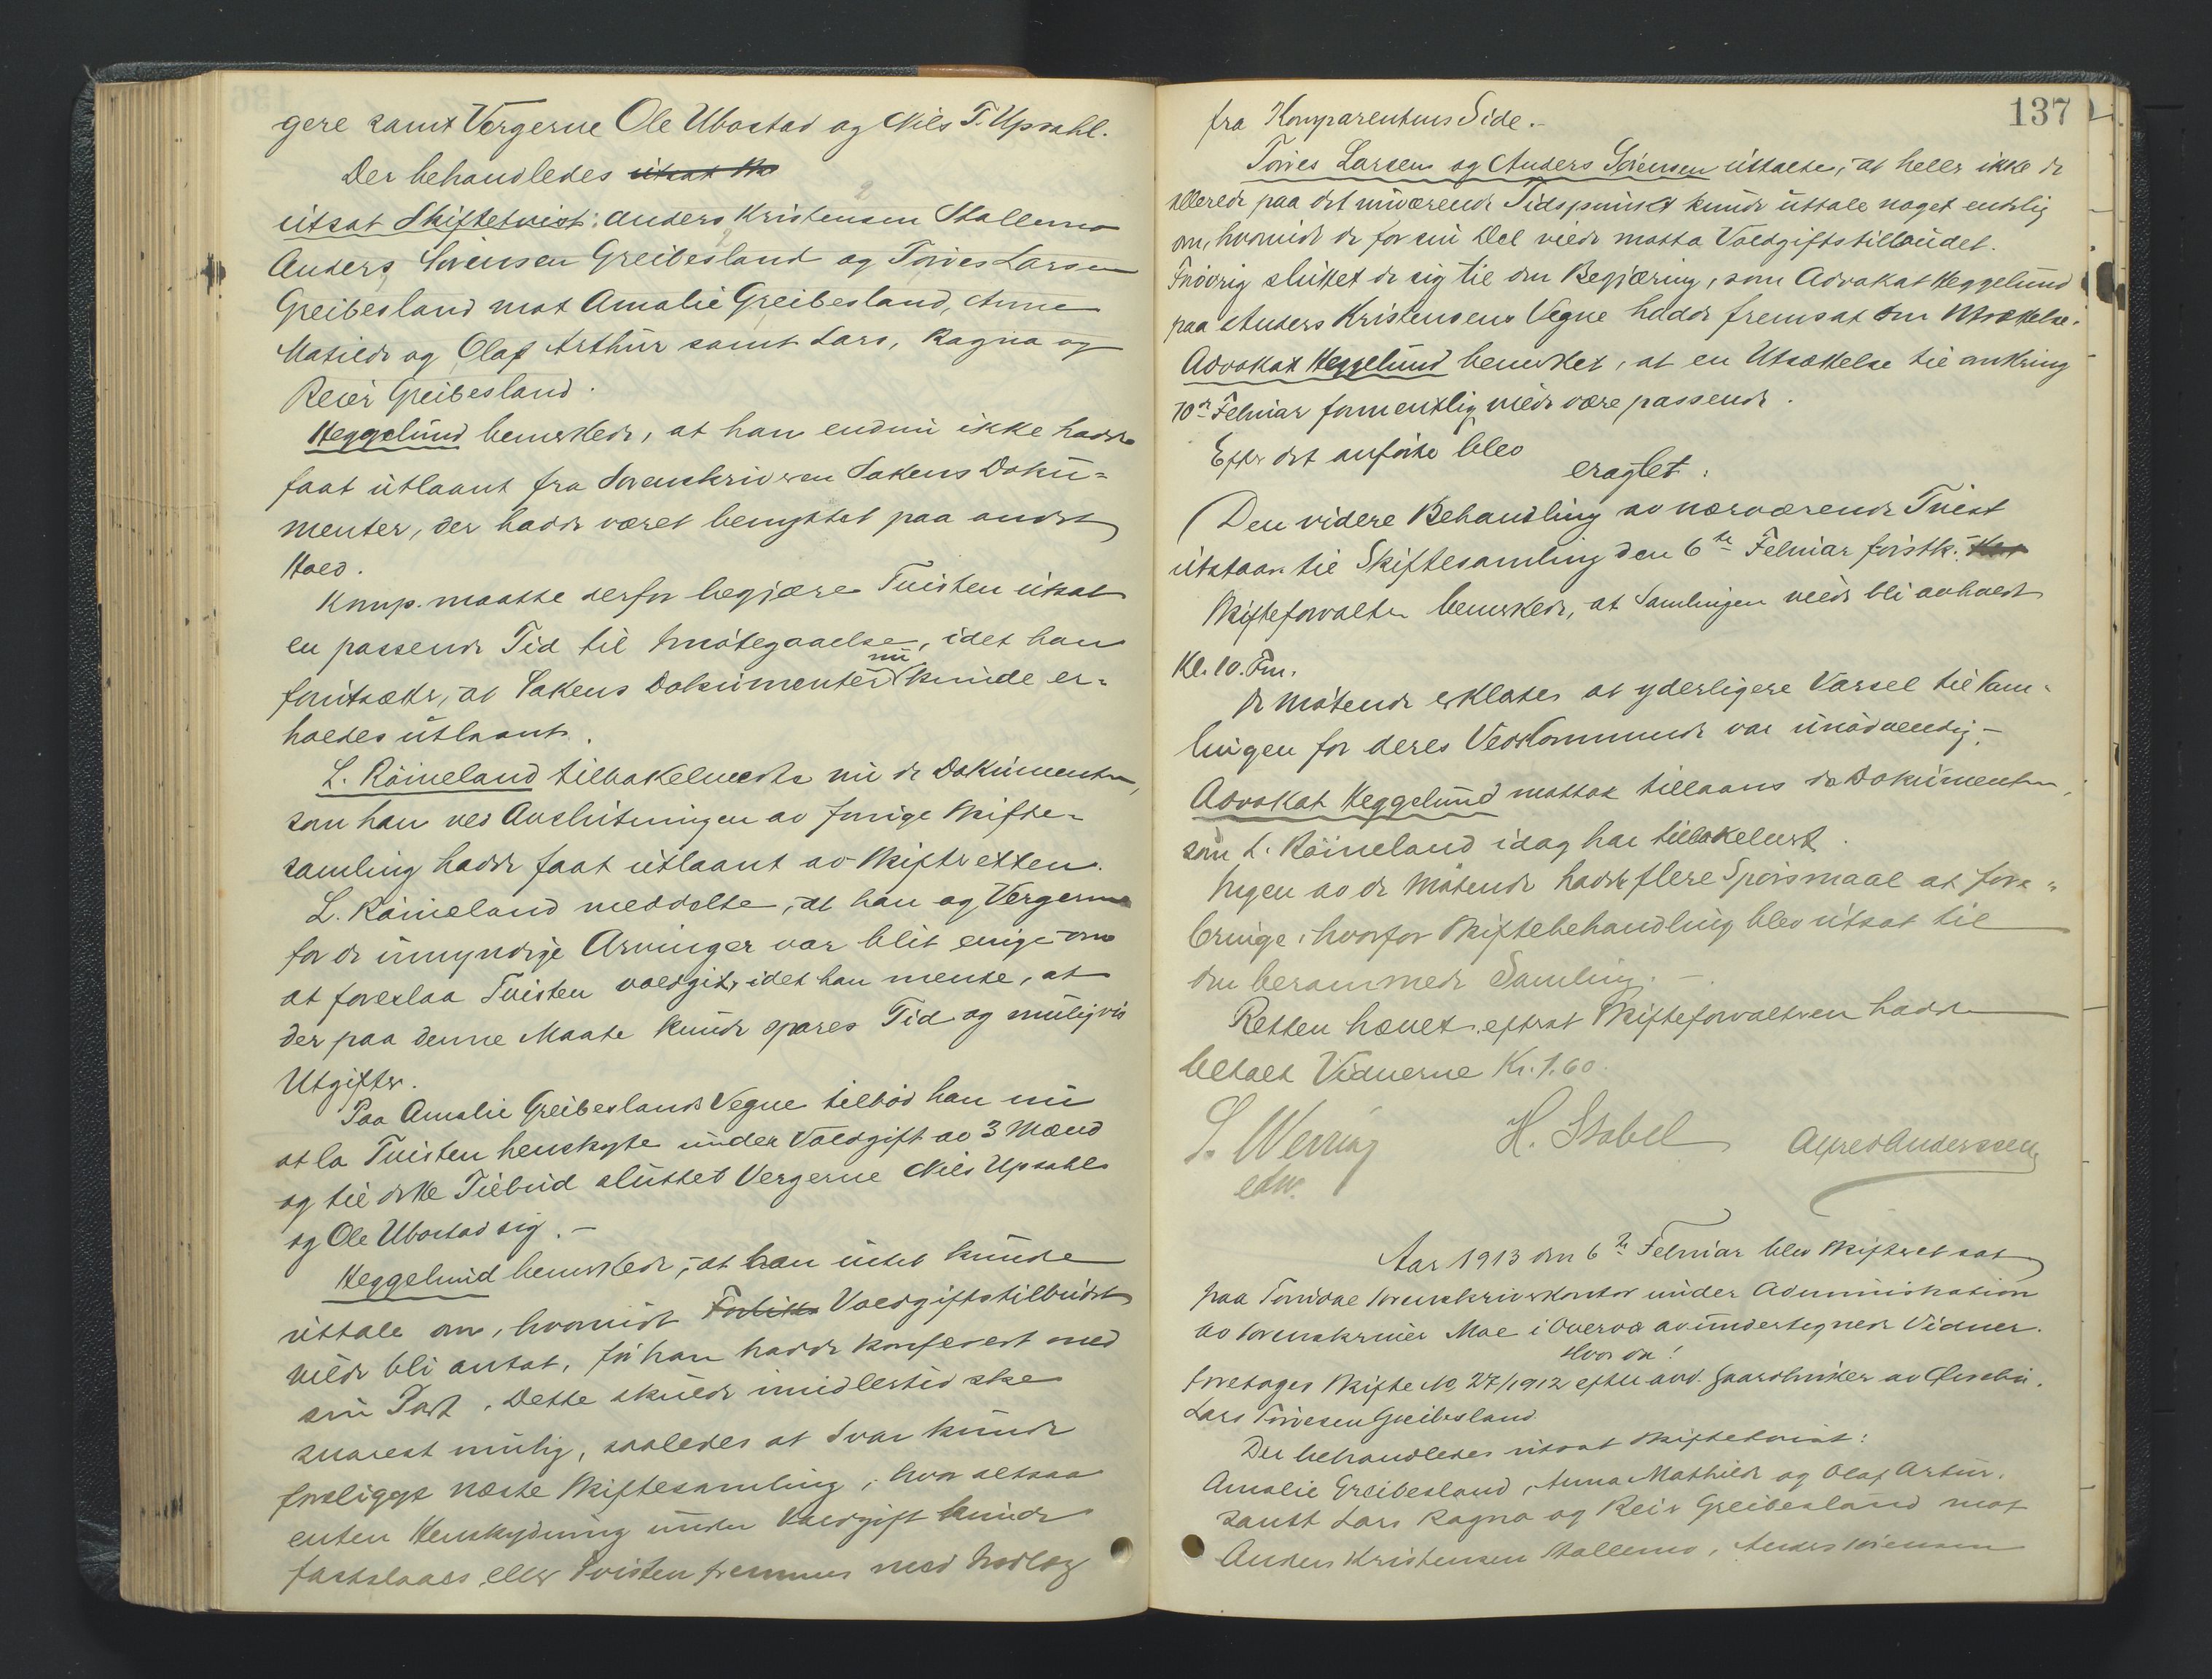 gere samt Vergerne Ole Ubostad og Nils T. Upsahl.
Der behandledes
utsat Skiftetvist: Anders Kristensen Stallemo
Anders Sørensen Greibesland og Torjes Larsen
Greibesland mot Amalie Greibesland, Anne
Matilde og Olaf Arthur samt Lars, Ragna og
Reier Greibesland.
Heggelund bemerkede, at han endnu ikke hadde
faat utlaant fra Sorenskriveren Sakens Doku-
menter, der hadde været benyttet paa andet
Sted.
Komp. maatte derfor begjære Tvisten utsat
en passende Tid til Imøtegaaelse, idet han
forutsatte, at Sakens Dokumenter nu kunde er-
holdes utlaant.
L. Røineland tilbakeleverte nu de Dokumenter,
som han ved Avslutningen av forrige Skifte-
samling hadde faat utlaant av Skifteretten.
L. Røineland meddelte, at han og Vergerne
for de umyndige Arvinger var blit enige om
at foreslaa Tvisten voldgit, idet han mente, at
der paa denne Maate kunde spares Tid og muligvis
Utgifter.
Paa Amalie Greibeslands Vegne tilbød han nu
at la Tvisten henskyte under Voldgift av 3 Mænd
og til dette Tilbud sluttet Vergerne Nils Upsahl
og Ole Ubostad sig. –
Heggelund bemerkede, at han intet kunde
uttale om, hvorvidt Voldgiftstilbudet
vilde bli antat, før han hadde konferert med
sin Part. Dette skulde imidlertid ske
snarest mulig, saaledes at Svar kunde
foreligge næste Skiftesamling, hvor altsaa
enten Henskydning under Voldgift kunde
fastslaaes eller Tvisten fremmes med Indlæg
137
fra Komparentens Side.–
Torjes Larsen og Anders Sørensen uttalte, at heller ikke de
allerede paa det nuværende Tidspunkt kunde uttale noget endelig
om, hvorvidt de for sin Del vilde motta Voldgiftstilbudet.
Forøvrig sluttet de sig til den Begjæring, som Advokat Heggelund
paa Anders Kristensens Vegne hadde fremsat om Utsættelse.
Advokat Heggelund bemerket, at en Utsættelse til omkring
10de Februar formentlig vilde være passende.
Efter det anførte blev
eragtet:
Den videre Behandling av nærværende Tvist
utstaar til Skiftesamling den 6te Februar førstk.
Skifteforvalteren bemerkede, at Samlingen vilde bli avholdt
Kl. 10. Fm.
De møtende erklærte at yderligere Varsel til Sam-
lingen for deres Vedkommende var unødvendig.–
Advokat Heggelund mottok tillaans de Dokumenter,
som L. Røineland idag har tilbakelevert.
Ingen av de møtende hadde flere Spørsmaal at fore-
bringe, hvorfor Skiftebehandling blev utsat til
den berammede Samling. –
Retten hævet, efterat Skifteforvalteren hadde
betalt Vidnerne Kr. 1.60.
S. Werring H. Stabel Alfred Anderssen
edv.
Aar 1913 den 6te Februar blev Skifteret sat
paa Torridal Sorenskriverkontor under Administration
av Sorenskriver Moe i Overvær av undertegnede Vidner.
Hvor da!
foretages Skifte No 27/1912 efter avd. Gaardbruker av Øvrebø.
Lars Torjesen Greibesland
Der behandledes utsat Skiftetvist:
Amalie Greibesland, Anna Mathilde og Olaf Artur.
samt Lars Ragna og Reier Greibesland mot
Anders Kristensen Stallemo, Anders Sørensen